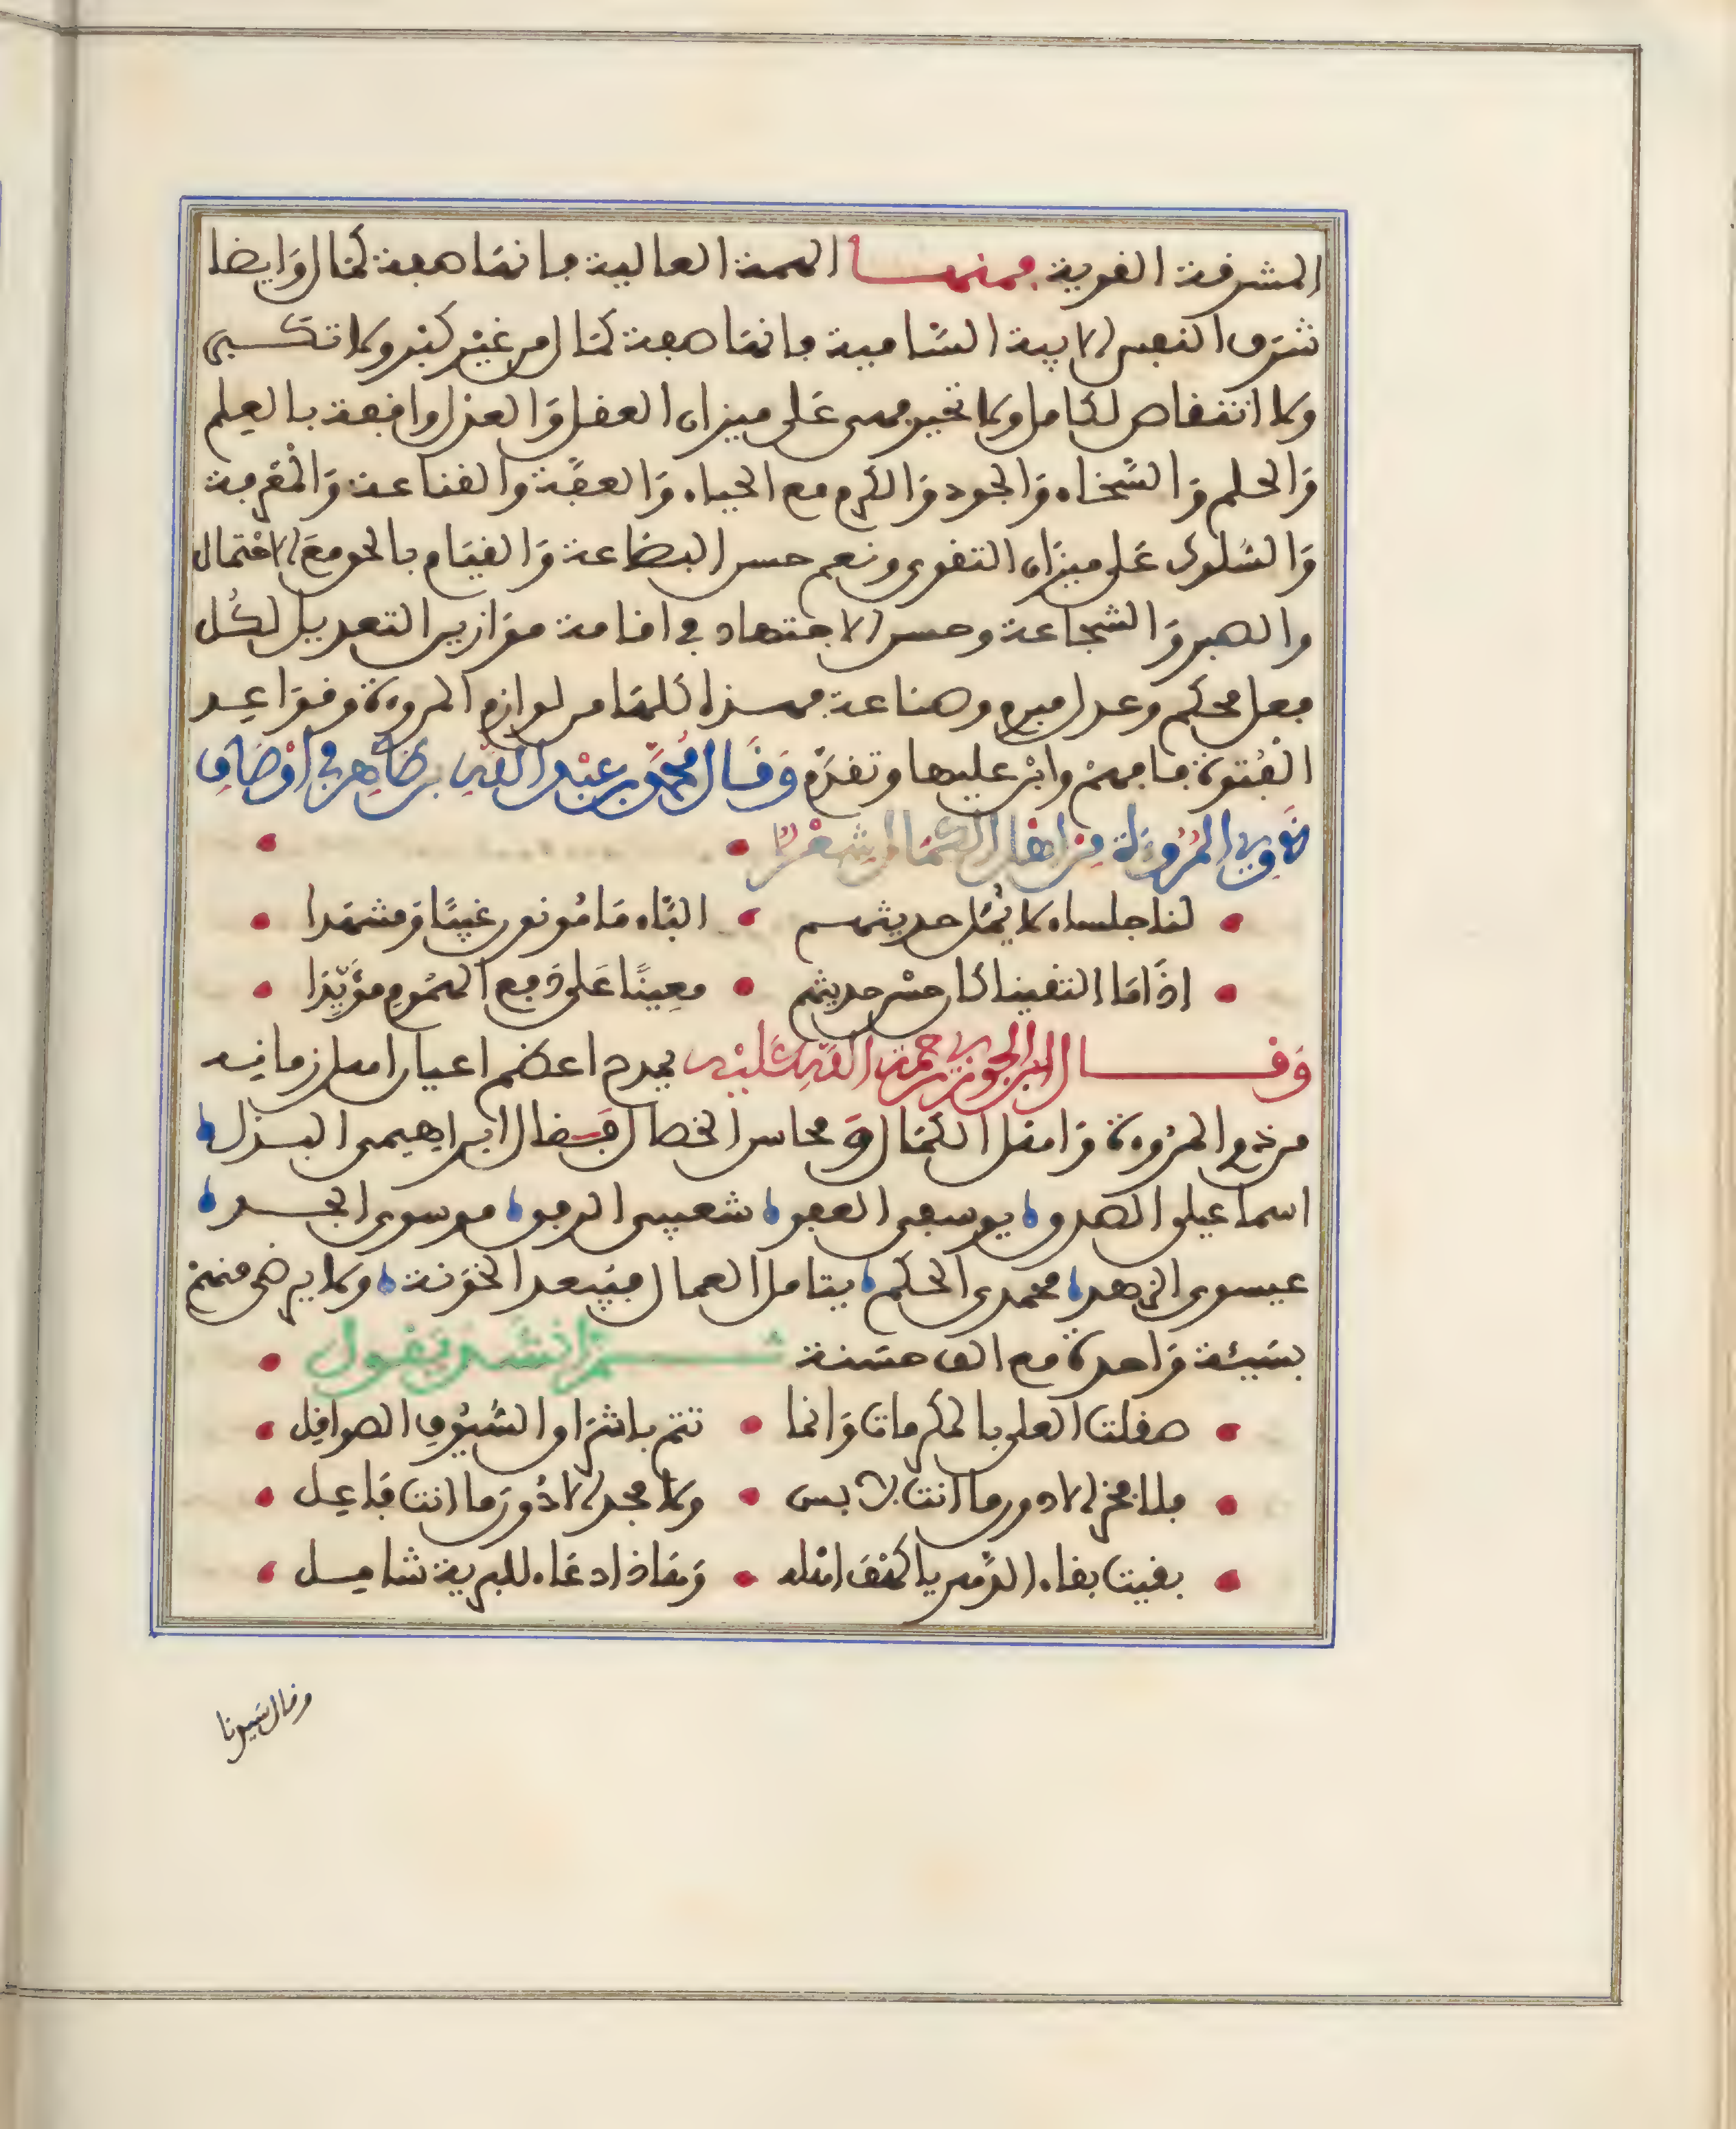 المشرفة القوية فمنها الهمة العالية فانها صفة كمال وايضا
شرف النفس الابية السامية فانها صفة كمال من غير كبر ولا تكبى
ولا انتقاص لكامل ولا تحيز فهى على ميزان العقل والعدل واقفة بالعلم
والحلم والسخاء والجود والكرم مع الحياء والعفة والقناعة والمعرفة
والسلوك على ميزان التقوى ونعم حسن البضاعة والقيام بالحق مع الاحتمال
والصبر والشجاعة وحسن الاجتهاد في اقامة موازين التعديل لكل
فعل محكم وعدل مبرم وصناعة فهذا كلها من لوازم المروءة وقواعد
الفتوة فافهم وابن عليها وتقدم وقال محمد بن عبد الله بن طاهر في اوصاف
ذوي المروءة من اهل الكمال شعرا
لنا جلساء لا يمل حديثهم • البّاء مامونون غيبا ومشهدا
اذا ما التقينا كان حسن حديثهم • معينا على دفع الهموم مؤيدا
وقال ابن الجوزي رحمة الله عليه يمدح اعظم اعيان اهل زمانه
من ذوي المروءة وامثل الكمال ومحاسن الخصال فقال ابراهيمى البذل
اسماعيلى الصدق يوسفى العفو شعيبى الرفق موسوى الجد
عيسوى الزهد محمدى الحكم يتامل العمال فيبعد الخونة ولا يرضى منهم
بسيئة واحدة مع الف حسنة ثم انشد يقول
صقلت العلى بالمكرمات وانما • تتم باشراق السيوف الصواقل
فلا فخر الا دون ما انت لابس • ولا مجد الا دون ما انت فاعل
بقيت بقاء الدهر يا كهف اهله • وهاذا دعاء للبرية شامل
وقال سيدنا